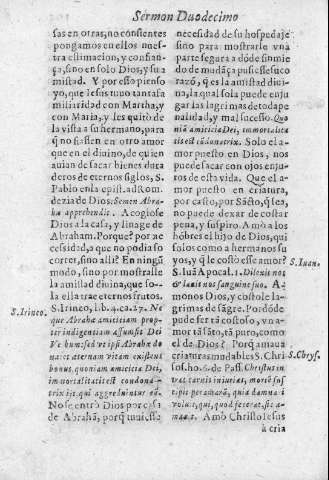 Sermon Duodecimo
sas en otras, no consientes
pongamos en ellos nues-
tra estimacion, y confian-
ça, sino en solo Dios, y su a
mistad. Y por esto pienso
yo, que Iesus tuuo tanta fa
miliaridad con Martha, y
con Maria, y les quitò de
la vista a su hermano, para
q̃ no fiassen en otro amor
que en el diuino, de quien
auian de sacar bienes dura
deros de eternos siglos, S.
Pablo en la epist. ad Rom.
dezia de Dios: Semen Abra-
ha apprehendit. A cogiose
Dios a la casa, y linage de
Abraham. Porque? por ne
cessidad, a que no podia so
correr, sino alli? En ningũ
modo, sino por mostralle
la amistad diuina, que so-
la ella trae eternos frutos.
S. Irineo, lib. 4. ca. 27. Ne
que Abrahæ amicitiam prop-
ter indigentiam assumsit Dei
Verbum sed vt ipsi Abrahæ do
naret æternam vitam existens
bonus, quoniam amicitia Dei,
immortalitatis est condona-
trix ijs, qui aggrediuntur eã.
No se entrò Dios por casa
de Abrahã, porq̃ tuuiesse
necesidad de su hospedaje
sino para mostrarle vna
parte segura a dõde sin mie
do de mudãça pusiesse suco
raçõ, q̃ es la amistad diui-
na, la qual sola puede enju
gar las lagrimas de toda pe
nalidad, y mal sucesso. Quo
niã amicitia Dei, immortalita
tis est cõdonatrix. Solo el a-
mor puesto en Dios, nos
puede sacar con ojos enju-
tos de esta vida. Que el a-
mor puesto en criatura,
por casto, por Sãcto, q̃ sea,
no puede dexar de costar
pena, y suspiro. Amò a los
hõbres el hijo de Dios, qui
solos como a hermanos su
yos, y q̃ le costò esse amor?
S. luã Apocal. 1. Dilexit nos
& lauit nos sanguine suo. A
monos Dios, y costole la-
grimas de sãgre. Por dõde
pude ser tã costoso, y vn a-
mor tã sãto, tã puro, como
el de Dios? Porq̃ amaua
criaturas mudables S. Chri
sof. ho. 6. de Pass. Christus in
trat carnis iniurias, morte sus
cipit peramarã, quia damna i
voluit, qui, quod fecerat, sic a-
maut. Amò Christo Iesus
à cria
S. Irineo.
S. Iuan.
S. Chrys.